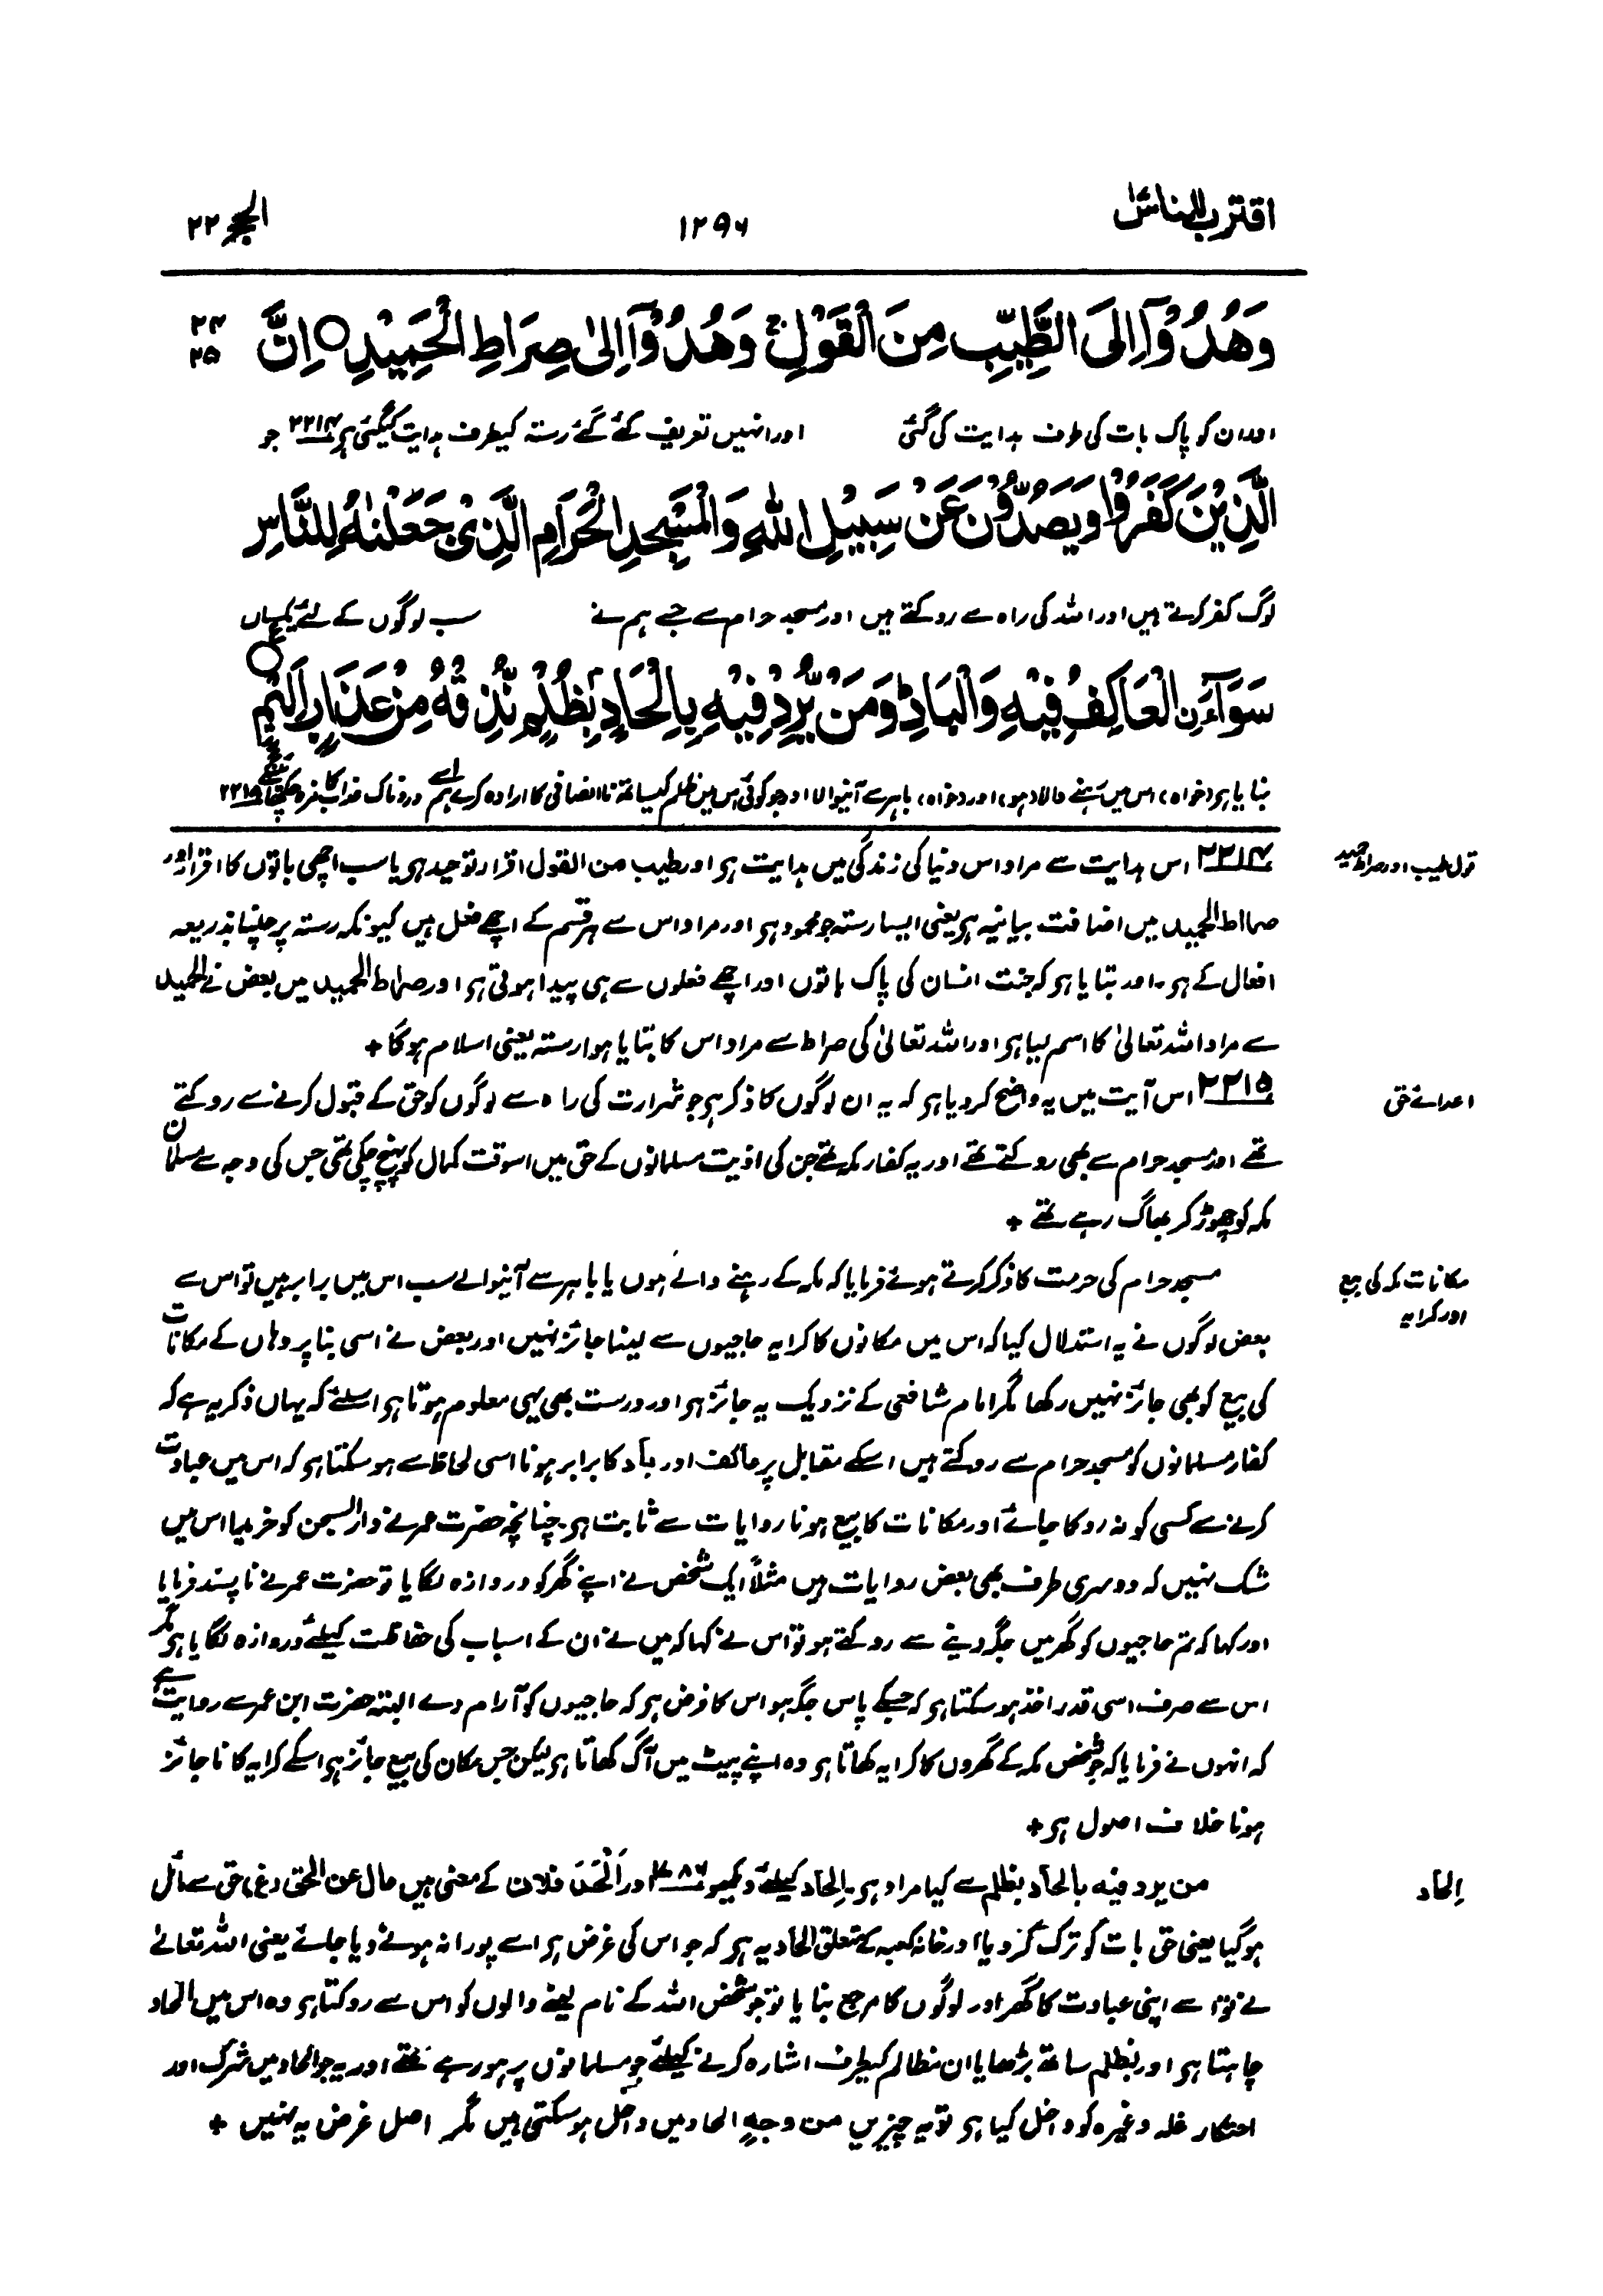 اقترب للناس ۱۷
۱۲۹۶
الحج ۲۲
وَهُدُوْٓا اِلَى الطَّيِّبِ مِنَ الْقَوْلِ ۚ وَهُدُوْٓا اِلٰى صِرَاطِ الْحَمِيْدِ ○ اِنَّ
۲۴
۲۵
اور ان کو پاک بات کی طرف ہدایت کی گئی اور انہیں تعریف کئے گئے رستہ کیطرف ہدایت کیگئی ہو ۲۲۱۴ جو
الَّذِيْنَ كَفَرُوْا وَيَصُدُّوْنَ عَنْ سَبِيْلِ اللّٰهِ وَالْمَسْجِدِ الْحَرَامِ الَّذِيْ جَعَلْنٰهُ لِلنَّاسِ
لوگ کفر کرتے ہیں اور اللہ کی راہ سے روکتے ہیں اور مسجد حرام سے جسے ہم نے سب لوگوں کے لئے یکساں
سَوَآءَ ۨ الْعَاكِفُ فِيْهِ وَالْبَادِ ؕ وَمَنْ يُّرِدْ فِيْهِ بِاِلْحَادٍۢ بِظُلْمٍ نُّذِقْهُ مِنْ عَذَابٍ اَلِيْمٍ ○ ع
بنایا ہو (خواہ) اس میں رہنے والا ہو، اور (خواہ) باہر سے آنیوالا اور جو کوئی اس میں ظلم کیساتھ ناانصافی کا ارادہ کرے ہم اسے دردناک عذاب کا مزہ چکھائینگے ۲۲۱۵
قول طیب اور صراط حمید
۲۲۱۴ اس ہدایت سے مراد اس دنیا کی زندگی میں ہدایت ہو اور طیب من القول اقرار توحید ہو یا سب اچھی باتوں کا اقرار اور
صراط الحمید میں اضافت بیانیہ ہو یعنی ایسا رستہ جو محمود ہو اور مراد اس سے ہر قسم کے اچھے فعل ہیں کیونکہ رستہ پر چلنا بذریعہ
افعال کے ہو۔ اور بتایا ہو کہ جنت انسان کی پاک باتوں اور اچھے فعلوں سے ہی پیدا ہوتی ہو اور صراط الحمید میں بعض نے الحمید
سے مراد اللہ تعالیٰ کا اسم لیا ہو اور اللہ تعالیٰ کی صراط سے مراد اس کا بتایا ہوا رستہ یعنی اسلام ہوگا +
اعدائے حق
۲۲۱۵ اس آیت میں یہ واضح کردیا ہو کہ یہ ان لوگوں کا ذکر ہو جو شرارت کی راہ سے لوگوں کو حق کے قبول کرنے سے روکتے
تھے اور مسجد حرام سے بھی روکتے تھے اور یہ کفار مکہ تھے جن کی اذیت مسلمانوں کے حق میں اسوقت کمال کو پہنچ چکی تھی جس کی وجہ سے مسلمان
مکہ کو چھوڑ کر بھاگ رہے تھے +
مکانات مکہ کی بیع
اور کرایہ
مسجد حرام کی حرمت کا ذکر کرتے ہوئے فرمایا کہ مکہ کے رہنے والے ہوں یا باہر سے آنیوالے سب اس میں برابر ہیں تو اس سے
بعض لوگوں نے یہ استدلال کیا کہ اس میں مکانوں کا کرایہ حاجیوں سے لینا جائز نہیں اور بعض نے اسی بنا پر وہاں کے مکانات
کی بیع کو بھی جائز نہیں رکھا مگر امام شافعی کے نزدیک یہ جائز ہو اور درست بھی یہی معلوم ہوتا ہو اسلئے کہ یہاں ذکر یہ ہے کہ
کفار مسلمانوں کو مسجد حرام سے روکتے ہیں اسکے مقابل پر عاکف اور باد کا برابر ہونا اسی لحاظ سے ہوسکتا ہو کہ اس میں عبادت
کرنے سے کسی کو نہ روکا جائے اور مکانات کا بیع ہونا روایات سے ثابت ہو۔ چنانچہ حضرت عمر نے دار السجن کو خریدا اس میں
شک نہیں کہ دوسری طرف بھی بعض روایات ہیں مثلاً ایک شخص نے اپنے گھر کو دروازہ لگایا تو حضرت عمر نے ناپسند فرمایا
اور کہا کہ تم حاجیوں کو گھر میں جگہ دینے سے روکتے ہو تو اس نے کہا کہ میں نے ان کے اسباب کی حفاظت کیلئے دروازہ لگایا ہو مگر
اس سے صرف اسی قدر اخذ ہوسکتا ہو کہ جسکے پاس جگہ ہو اس کا فرض ہو کہ حاجیوں کو آرام دے البتہ حضرت ابن عمر سے روایت ہے
کہ انہوں نے فرمایا کہ جو شخص مکہ کے گھروں کا کرایہ کھاتا ہو وہ اپنے پیٹ میں آگ کھاتا ہو لیکن جس مکان کی بیع جائز ہو اسکے کرایہ کا ناجائز
ہونا خلاف اصول ہو +
اِلحاد
من یرد فیہ بالحاد بظلم سے کیا مراد ہو۔ اِلحاد کیلئے دیکھو اور اَلْحَدَ فلان کے معنی ہیں مال عن الحق (غ) حق سے مائل
ہوگیا یعنی حق بات کو ترک کردیا اور خانہ کعبہ کے متعلق الحاد یہ ہو کہ جو اس کی غرض ہو اسے پورا نہ ہونے دیا جائے یعنی اللہ تعالیٰ
نے تو اسے اپنی عبادت کا گھر اور لوگوں کا مرجع بنایا تو جو شخص اللہ کے نام لیوا والوں کو اس سے روکتا ہو وہ اس میں الحاد
چاہتا ہو اور بظلم ساتھ بڑھایا ان مظالم کیطرف اشارہ کرنے کیلئے جو مسلمانوں پر ہو رہے تھے اور یہ جو الحاد میں شرک اور
احتکار غلہ وغیرہ کو داخل کیا ہو تو یہ چیزیں من وجہٍ الحاد میں داخل ہوسکتی ہیں مگر اصل غرض یہ نہیں +